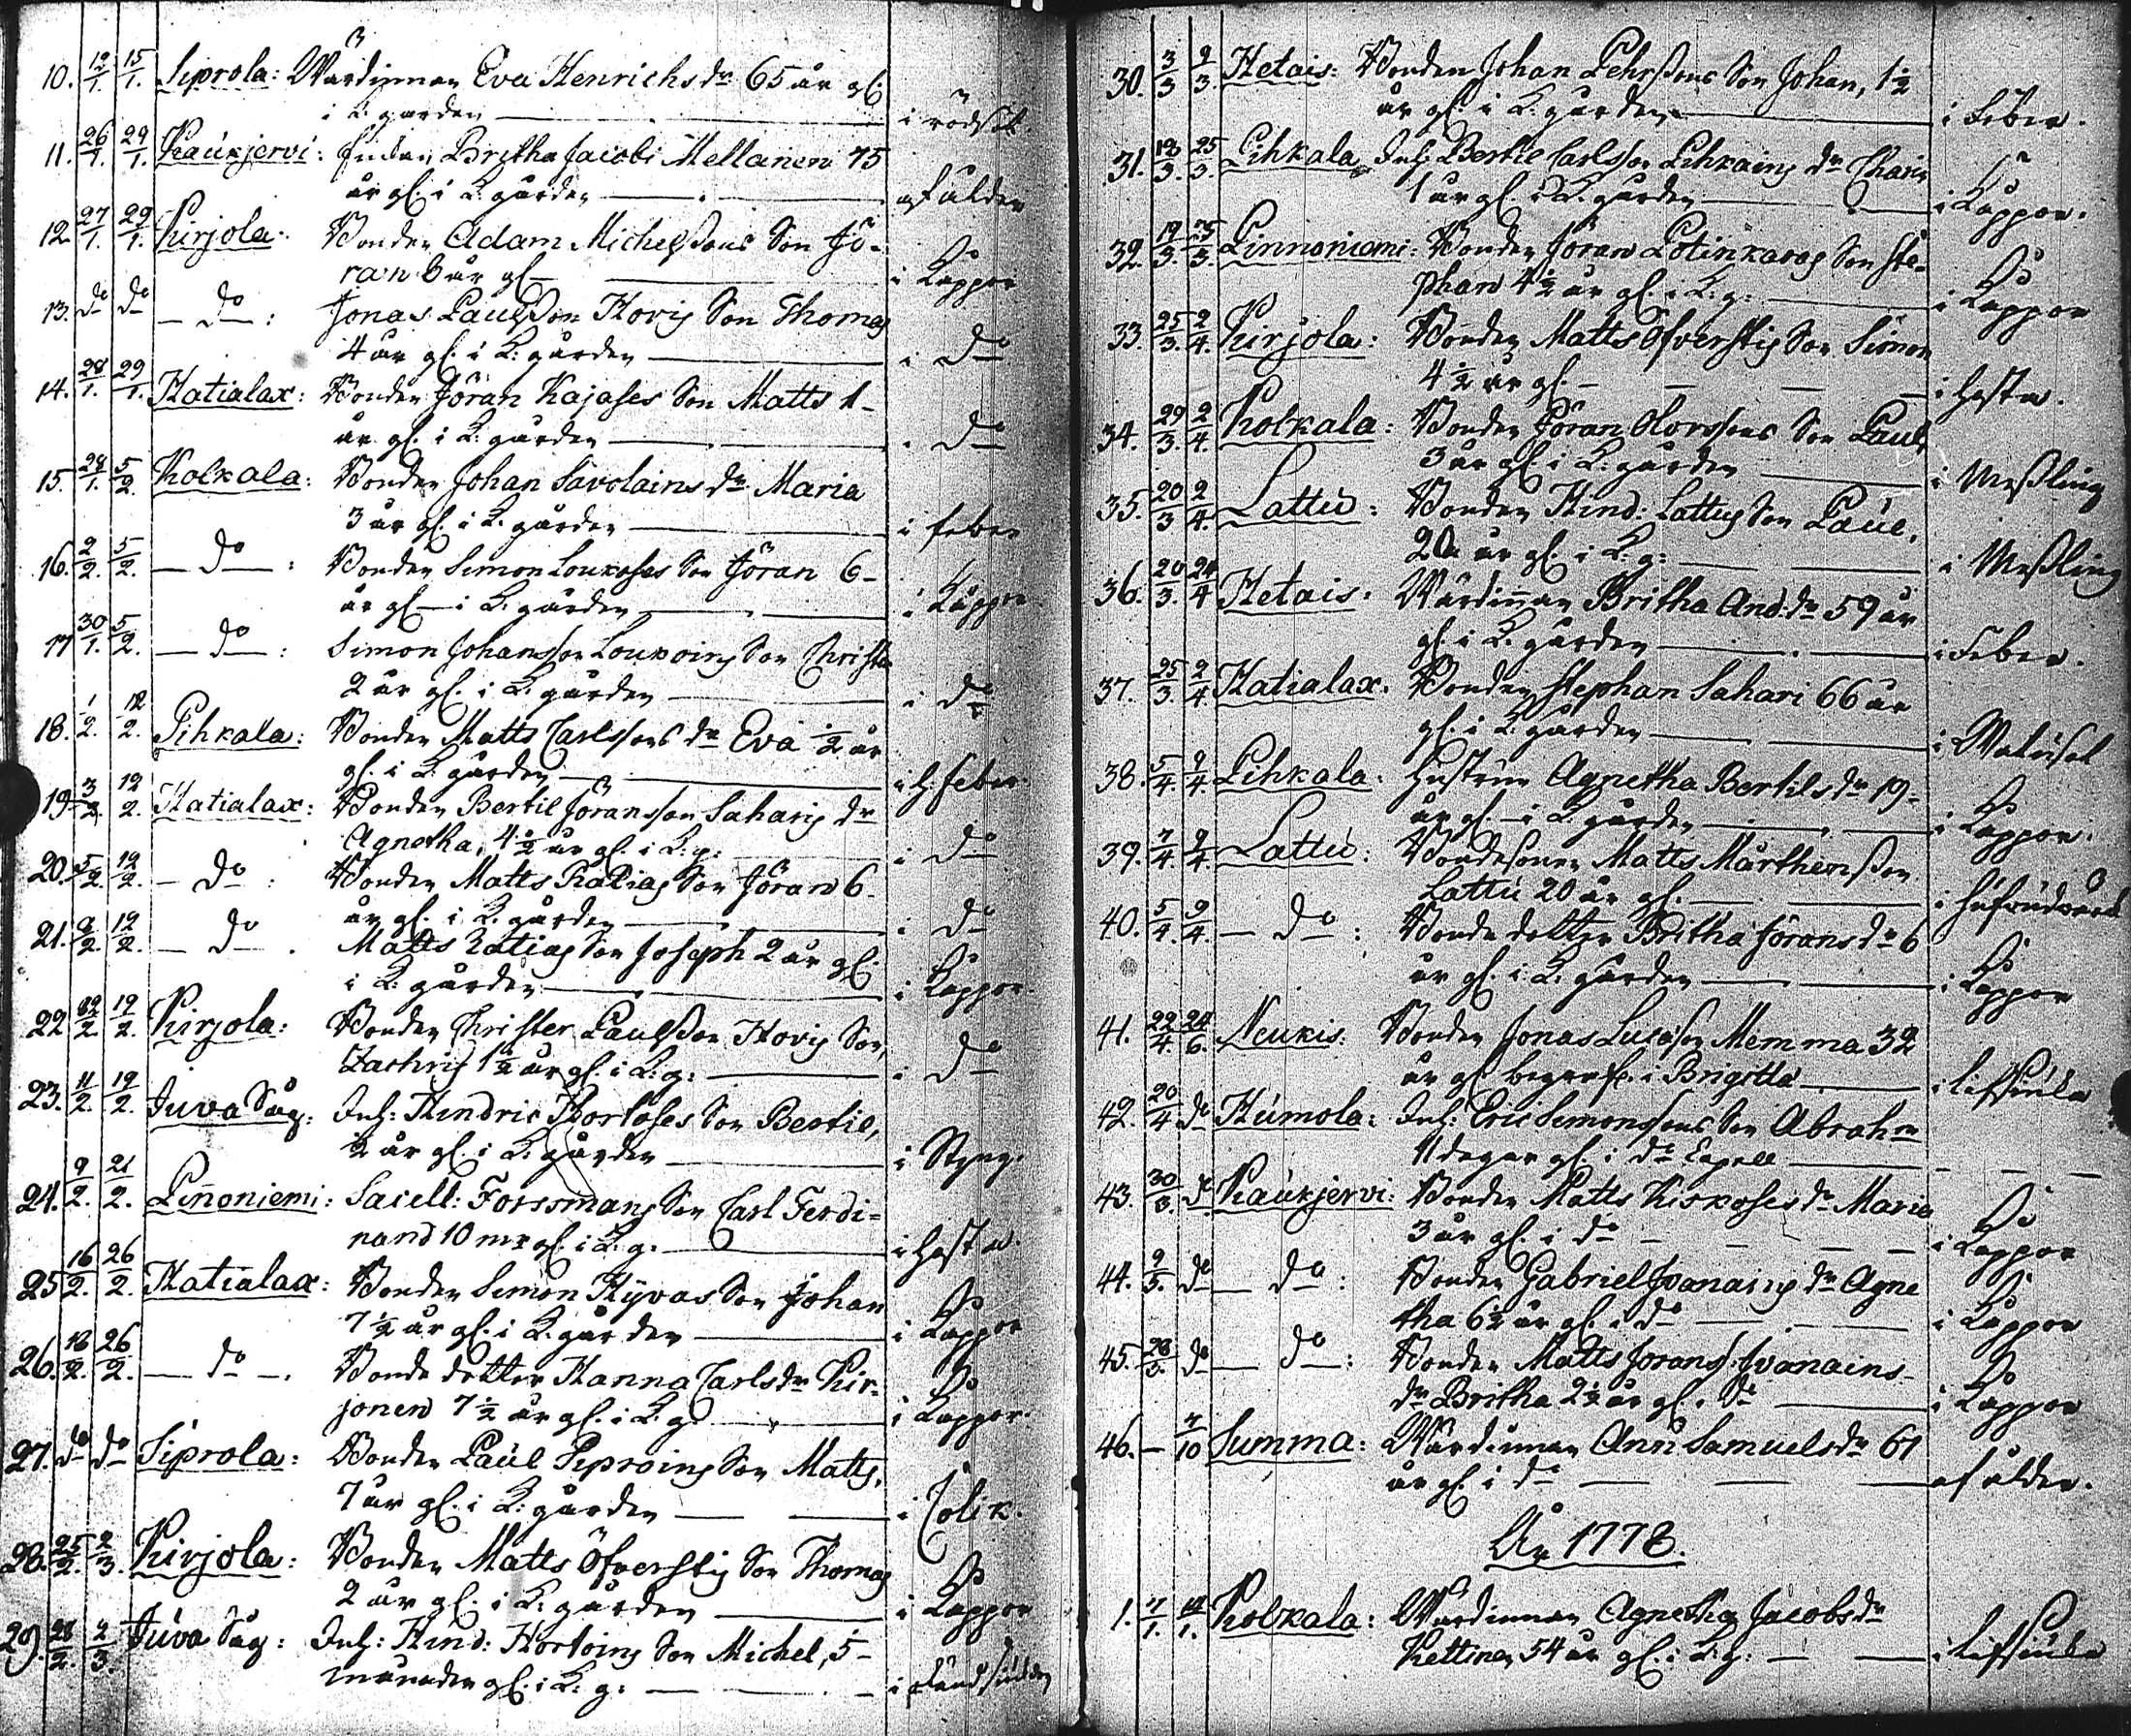 10. 12/1. 15/1. Siprola: Wärdinnan Eva Henrichs dr 65 år gl.
i K: gården — i rödsot.
11. 26/1. 29/1. Kaukjervi: Enkan Britha Jacobi Mellanen 75
år gl. i K: gården — af ålder
12. 27/1. 29/1. Kirjola: Bonden Adam Michelssons Son Jö-
ran 6 år gl — i Koppor
13. do do — do — : Jonas Paulsson Hovis Son Thomas
4 år gl. i K: gården — i do
14. 28/1. 29/1. Hatialax: Bonden Jöran Kajases Son Matts 1-
år gl. i K: gården — i do
15. 28/1. 5/2. Kolkala: Bonden Johan Savolains dr Maria
3 år gl. i K. gården — i feber
16. 2/2. 5/2. — do — : Bonden Simon Loukoses Son Jöran 6-
år gl — i K. gården — i Koppor
17 30/1. 5/2. — do — : Simon Johansson Loukoins Son Christer
2 år gl. i K. gården — i do
18. 1/2. 12/2. Pihkala: Bonden Matts Carlssons dr Eva 1/2 år
gl. i K gården — i H. feber.
19 3/2. 12/2. Hatialax: Bonden Bertil Jöransson Saharis dr
Agnetha, 4 1/2 år gl. i K: g: — i do
20. 5/2. 12/2. — do — : Bonden Matts Ratias Son Jöran 6-
år gl. i K. gården — i do
21. 9/2. 12/2. — do — . Matts Ratias Son Joseph 2 år gl.
i K. gården — i Koppor.
22 12/2. 19/2. Kirjola: Bonden Christer Paulsson Hovis Son,
Zachris 1 1/2 år gl. i K: g: — i do
23. 11/2. 19/2. Juva Såg: Inh: Hindric Hortoses Son Bertil,
1/2 år gl. i K. gården — i Styng.
24. 9/2. 21/2. Linnoniemi: Sacell: Forssmans Son Carl Ferdi=
nand 10 mr gl. i K. g. — i Hosta.
25 16/2. 26/2. Hatialax: Bonden Simon Hyvas Son Johan
7 1/2 år gl. i K. gården — i Koppor
26. 18/2. 26/2. — do — . Bonde dotter Hanna Carls dr Kir=
jonen 7 1/2 år gl. i K. g. — i Koppor.
27. do do Siprola: Bonden Paul Siproins Son Matts,
7 år gl. i K: gården — i Colik.
28. 25/2. 2/3. Kirjola: Bonden Matts Öfverstis Son Thomas
2 år gl. i K: gården — i Koppor
29. 28/2. 2/3. Juva Såg: Inh: Hind: Hortoins Son Michel, 5-
månader gl. i K: g: —
30. 3/3 9/3. Hetais: Bonden Johan Pehrssons Son Johan, 1 1/2
år gl. i K. gården — i Feber.
31. 18/3. 25/3. Pihkala Inh: Bertil Carlsson Pihkains dr Charin
1 år gl. i K. gården — i Koppor.
32. 19/3. 25/3. Linnoniemi: Bonden Jöran Lotinkaras Son Ste-
phan 4 1/2 år gl. i K: g: — i Koppor
33. 25/3. 2/4. Kirjola: Bonden Matts Öfverstis Son Simon
4 1/2 år gl. — i Hosta.
34. 29/3. 2/4. Kolkala: Bonden Jöran Olovssons Son Paul,
3 år gl. i K: gården — i Messling
35. 20/3 2/4. Lattu: Bonden Hind: Lattus Son Paul,
år gl. i K. g: — i Messling
36. 20/3. Hetais. Wärdinnan Britha And: dr 59 år
gl. i K. gården — i Feber.
37. 25/3. 2/4. Hatialax. Bonden Stephan Sahari 66 år
gl. i K. gården — i Watusot
38. 5/4. 9/4. Pihkala: Hustrun Agnetha Bertils dr 19-
år gl. — i K gården — i Koppor.
39. 7/4. 9/4. Lattu: Bondesonen Matts Mårthensson
Lattu 20 år gl. — i hufvudvärk
40. 5/4. 9/4. — do — : Bonde dotter Britha Jörans dr 6
år gl. i K. gården — i Koppor
41. 22/4. 24/6. Neukis: Bonden Jonas Lucasson Memma 32
år gl begrofs. i Brigitta — i lifssiuka
42. 20/4 do Humola: Inh: Eric Simonssons Son Abrahm
11 dagar gl. i do Capell — — —
43. 30/3. do Kaukjervi: Bonden Matts Kiskoses dr Maria
3 år gl. i do — i Koppor
44. 9/5. do — do : Bonden Gabriel Ivanains dr Agne
tha 6 1/2 år gl. i do — i Koppor
45. 28/3. do — do — : Bonden Matts Jöranss. Ivanains-
dr Britha 2 1/2 år gl. i do — i Koppor
46. — 7/10 Summa: Wärdinnan Ann Samuels dr 61
år gl. i do — af ålder.
År 1778.
1. 7/1. Kolkala: Wärdinnan Agnetha Jacobs dr
Kettinen, 54 år gl. i K. g: — i lifssiuka